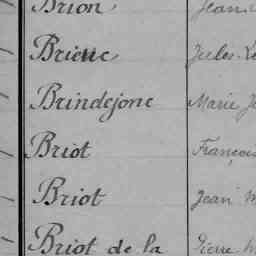 Brion Jean
Brieuc Jules
Brindejonc Marie
Briot François
Briot Jean M
Briot de la Pierre M